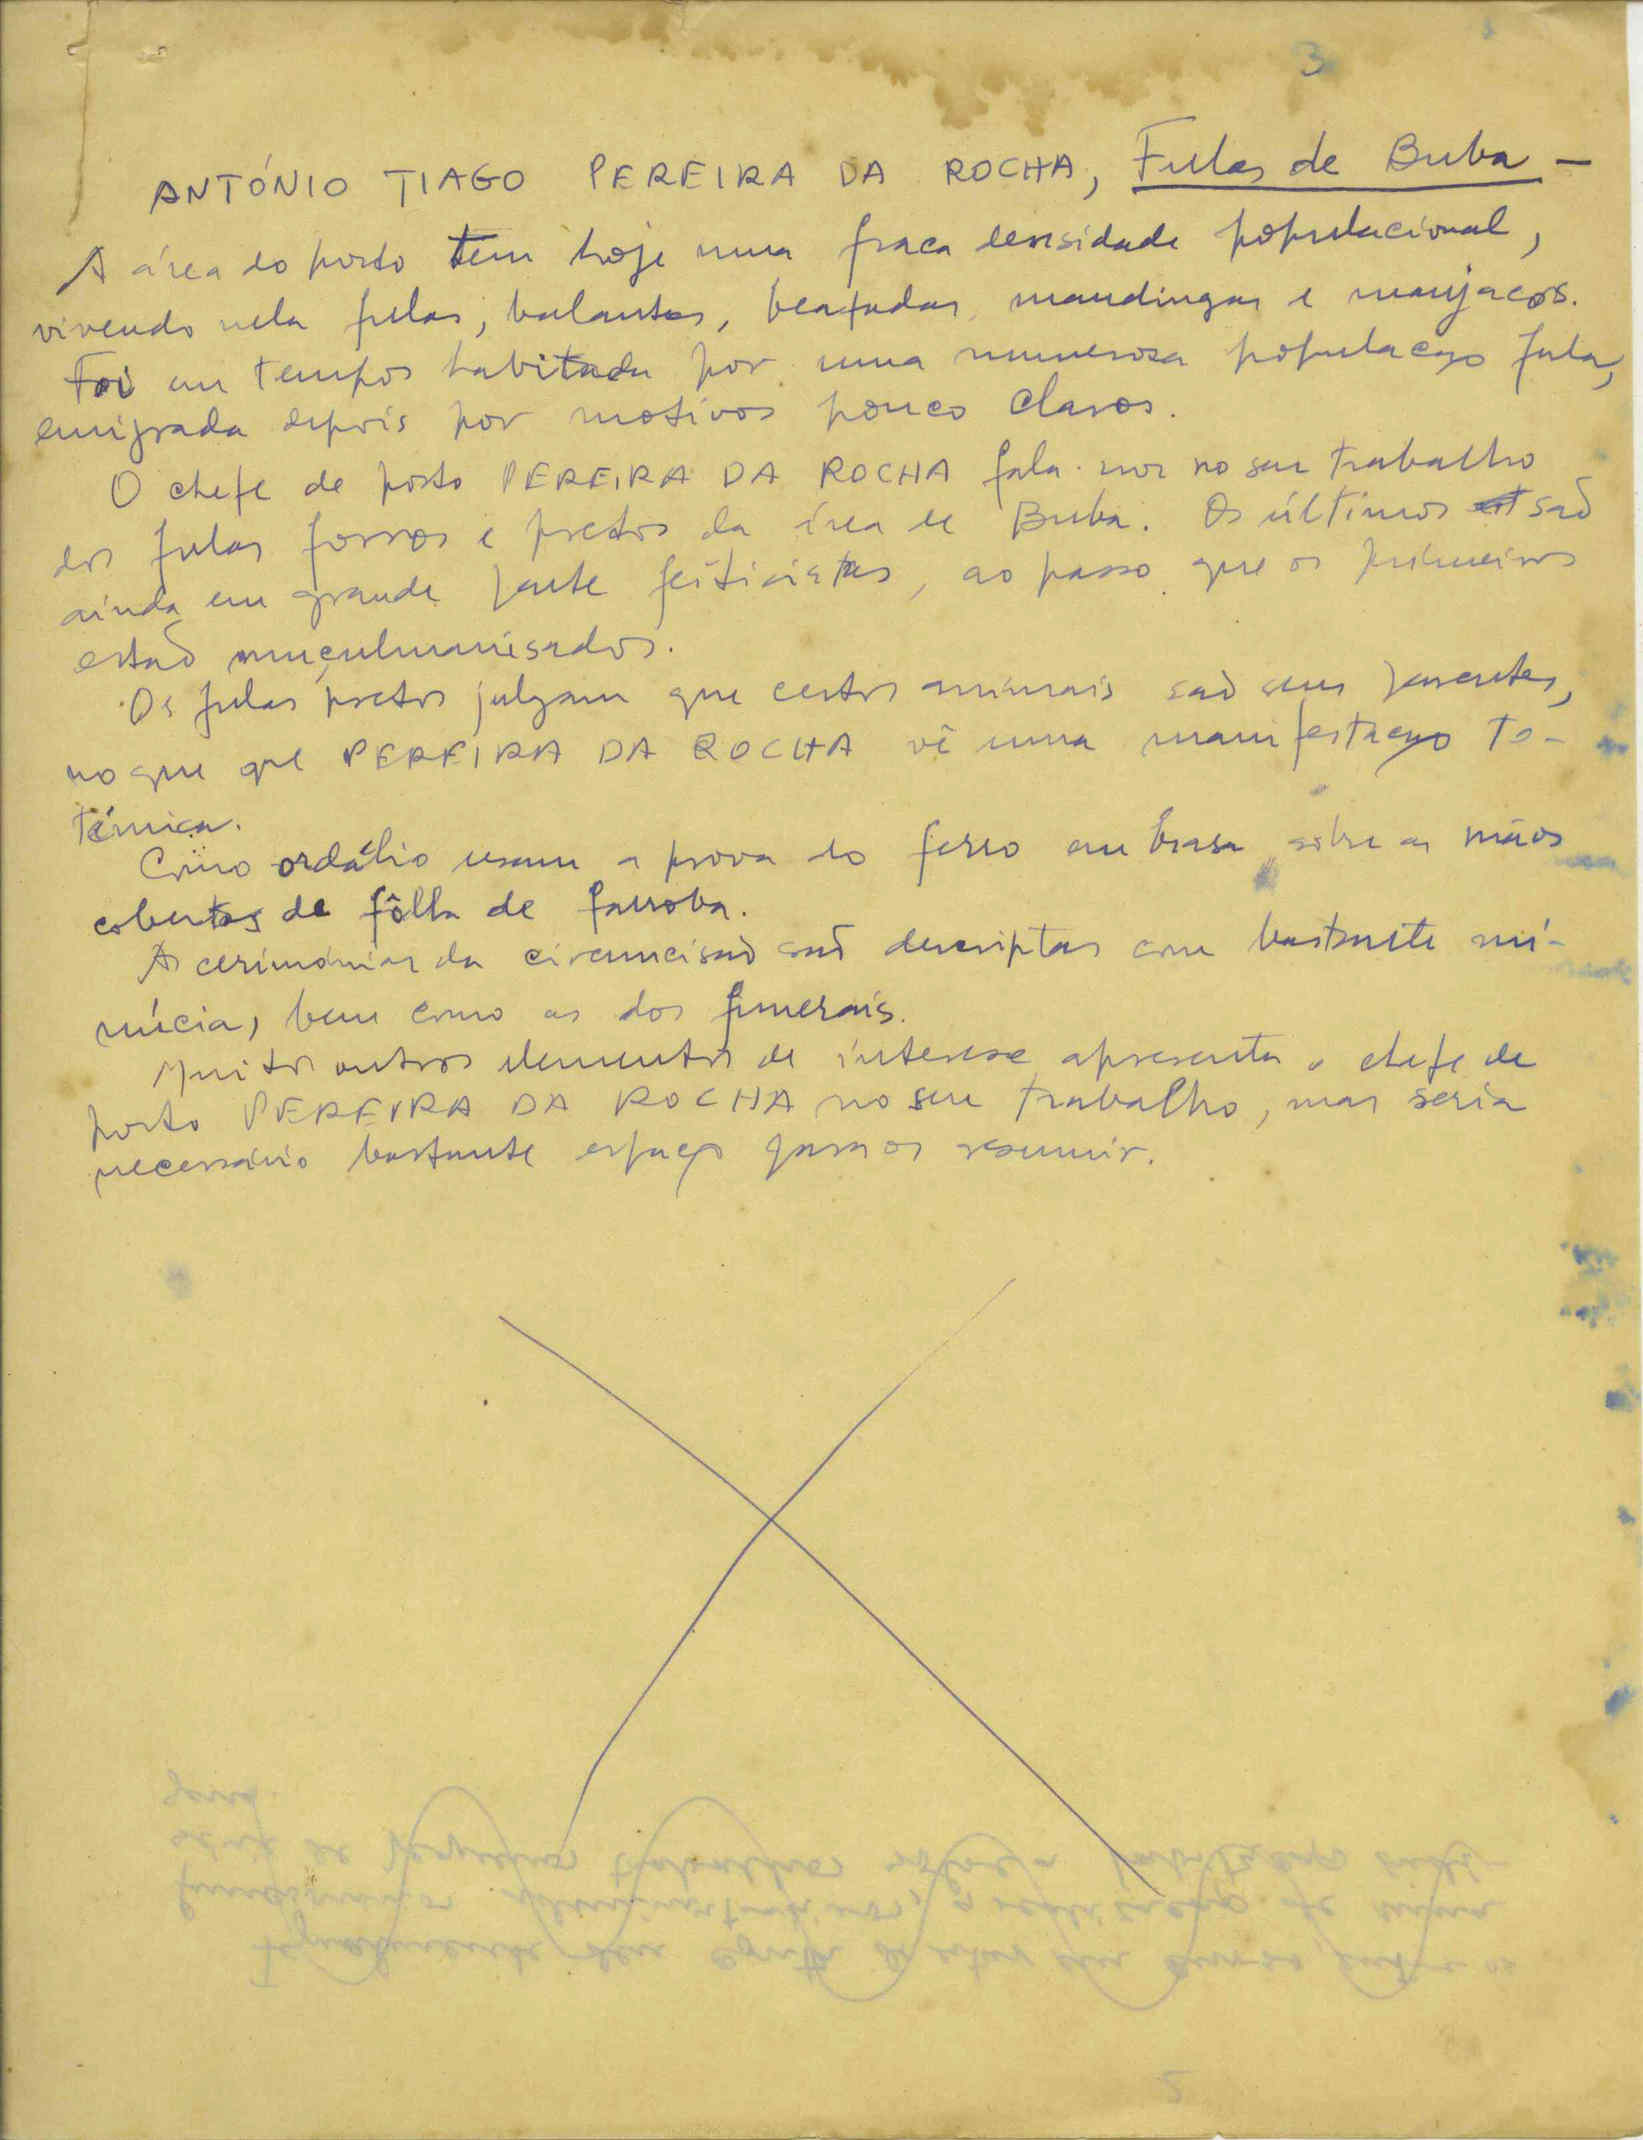 3
ANTÓNIO TIAGO PEREIRA DA ROCHA, Fulas de Buba —
A área do posto tem hoje uma fraca densidade populacional,
vivendo nela fulas, balantas, beafadas, mandingas e manjacos.
Foi em tempos habitada por uma numerosa população fula,
emigrada depois por motivos pouco claros.
O chefe de posto PEREIRA DA ROCHA fala-nos no seu trabalho
dos fulas forros e pretos da área de Buba. Os últimos são
ainda em grande parte feiticistas, ao passo que os primeiros
estão muçulmanisados.
Os fulas pretos julgam que certos animais são seus parentes,
no que que PEREIRA DA ROCHA vê uma manifestação to-
témica.
Como ordálio usam a prova do ferro em brasa sôbre as mãos
cobertas de fôlha de farroba.
As cerimónias da circuncisão são descriptas com bastante mi-
núcia, bem como as dos funerais.
Muitos outros elementos de interesse apresenta o chefe de
posto PEREIRA DA ROCHA no seu trabalho, mas seria
necessário bastante espaço para os resumir.